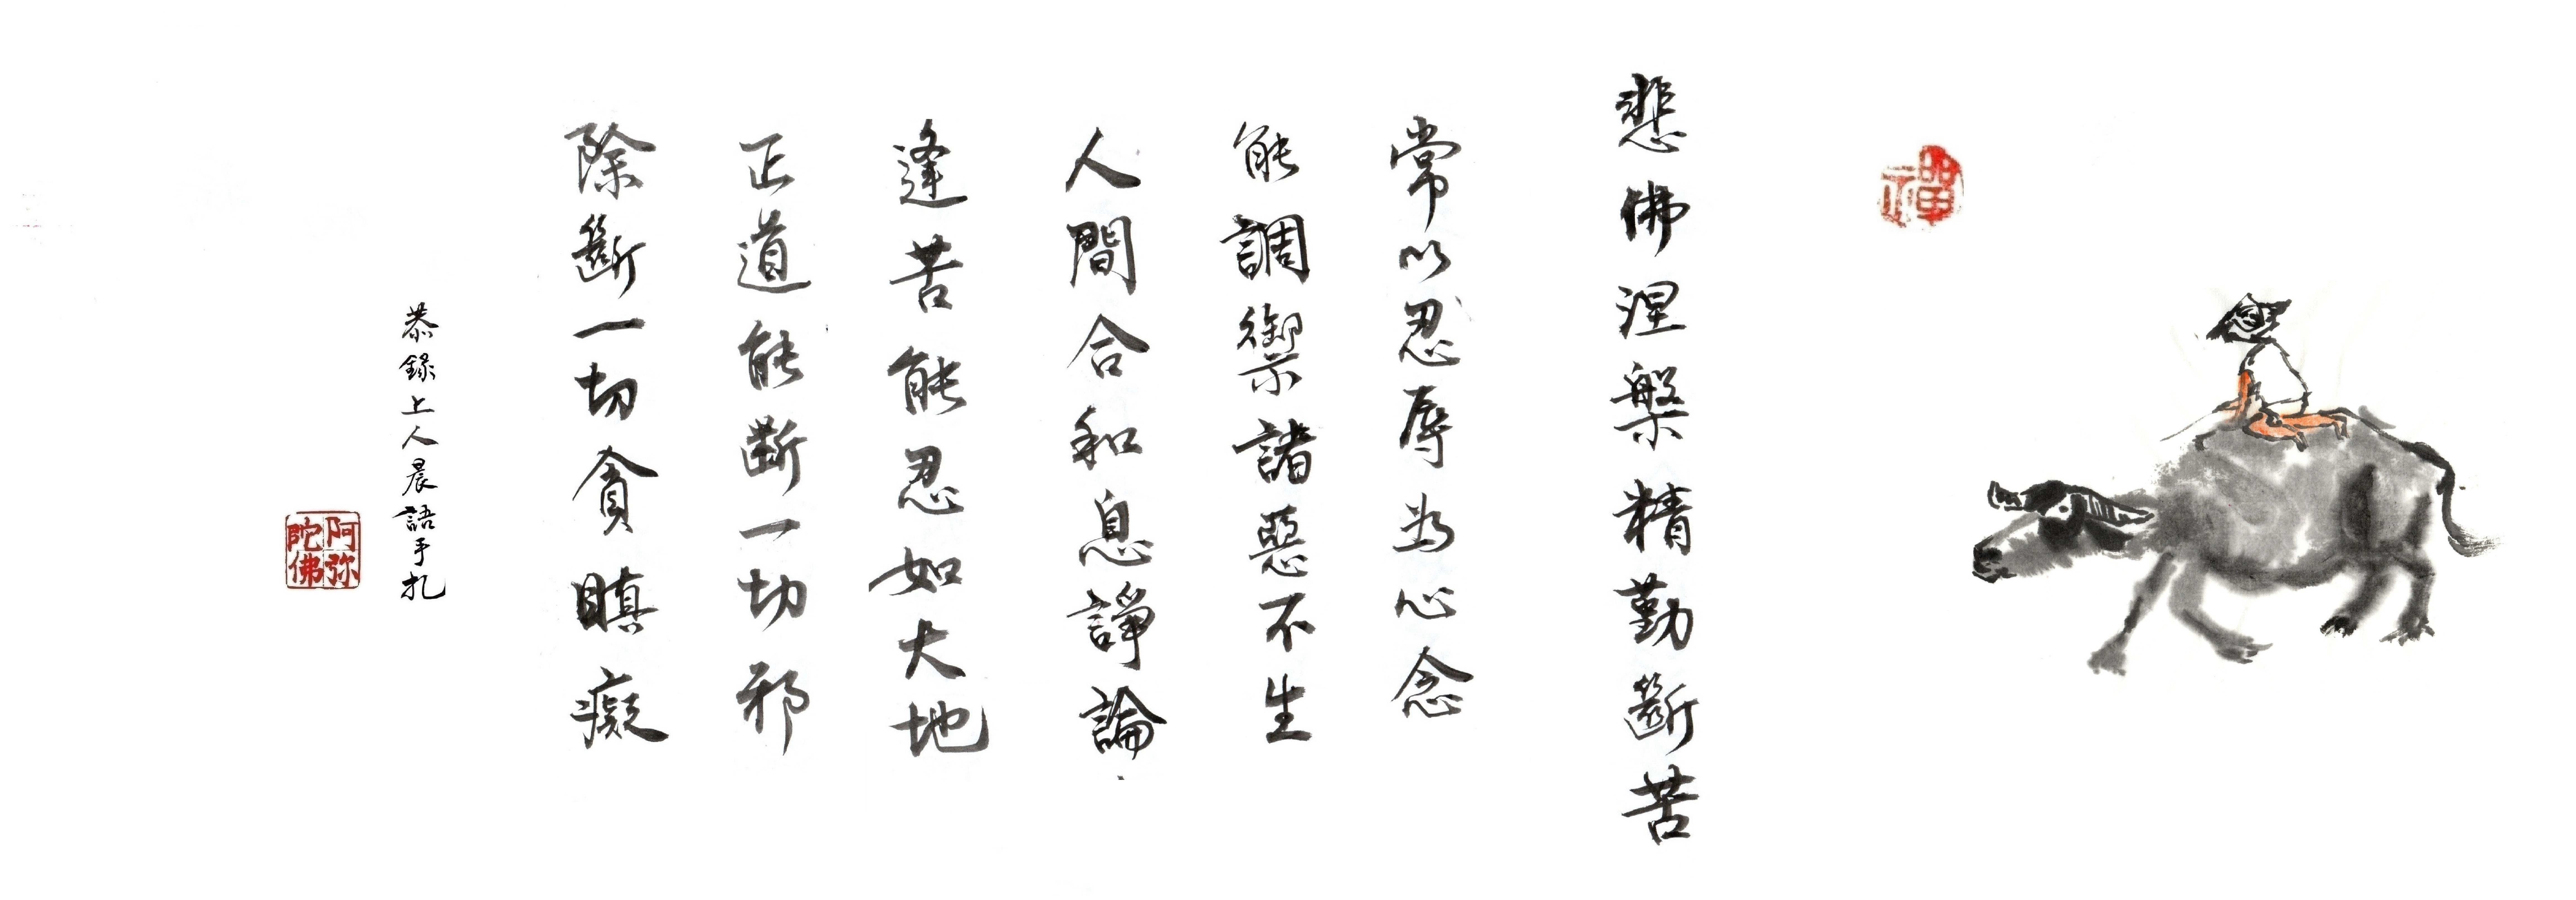 禪
悲佛涅槃精勤斷苦
常以忍辱為心念
能調禦諸惡不生
人間合和息諍論
逢苦能忍如大地
正道能斷一切邪
除斷一切貪瞋癡
恭錄上人晨語手扎
阿弥陀佛